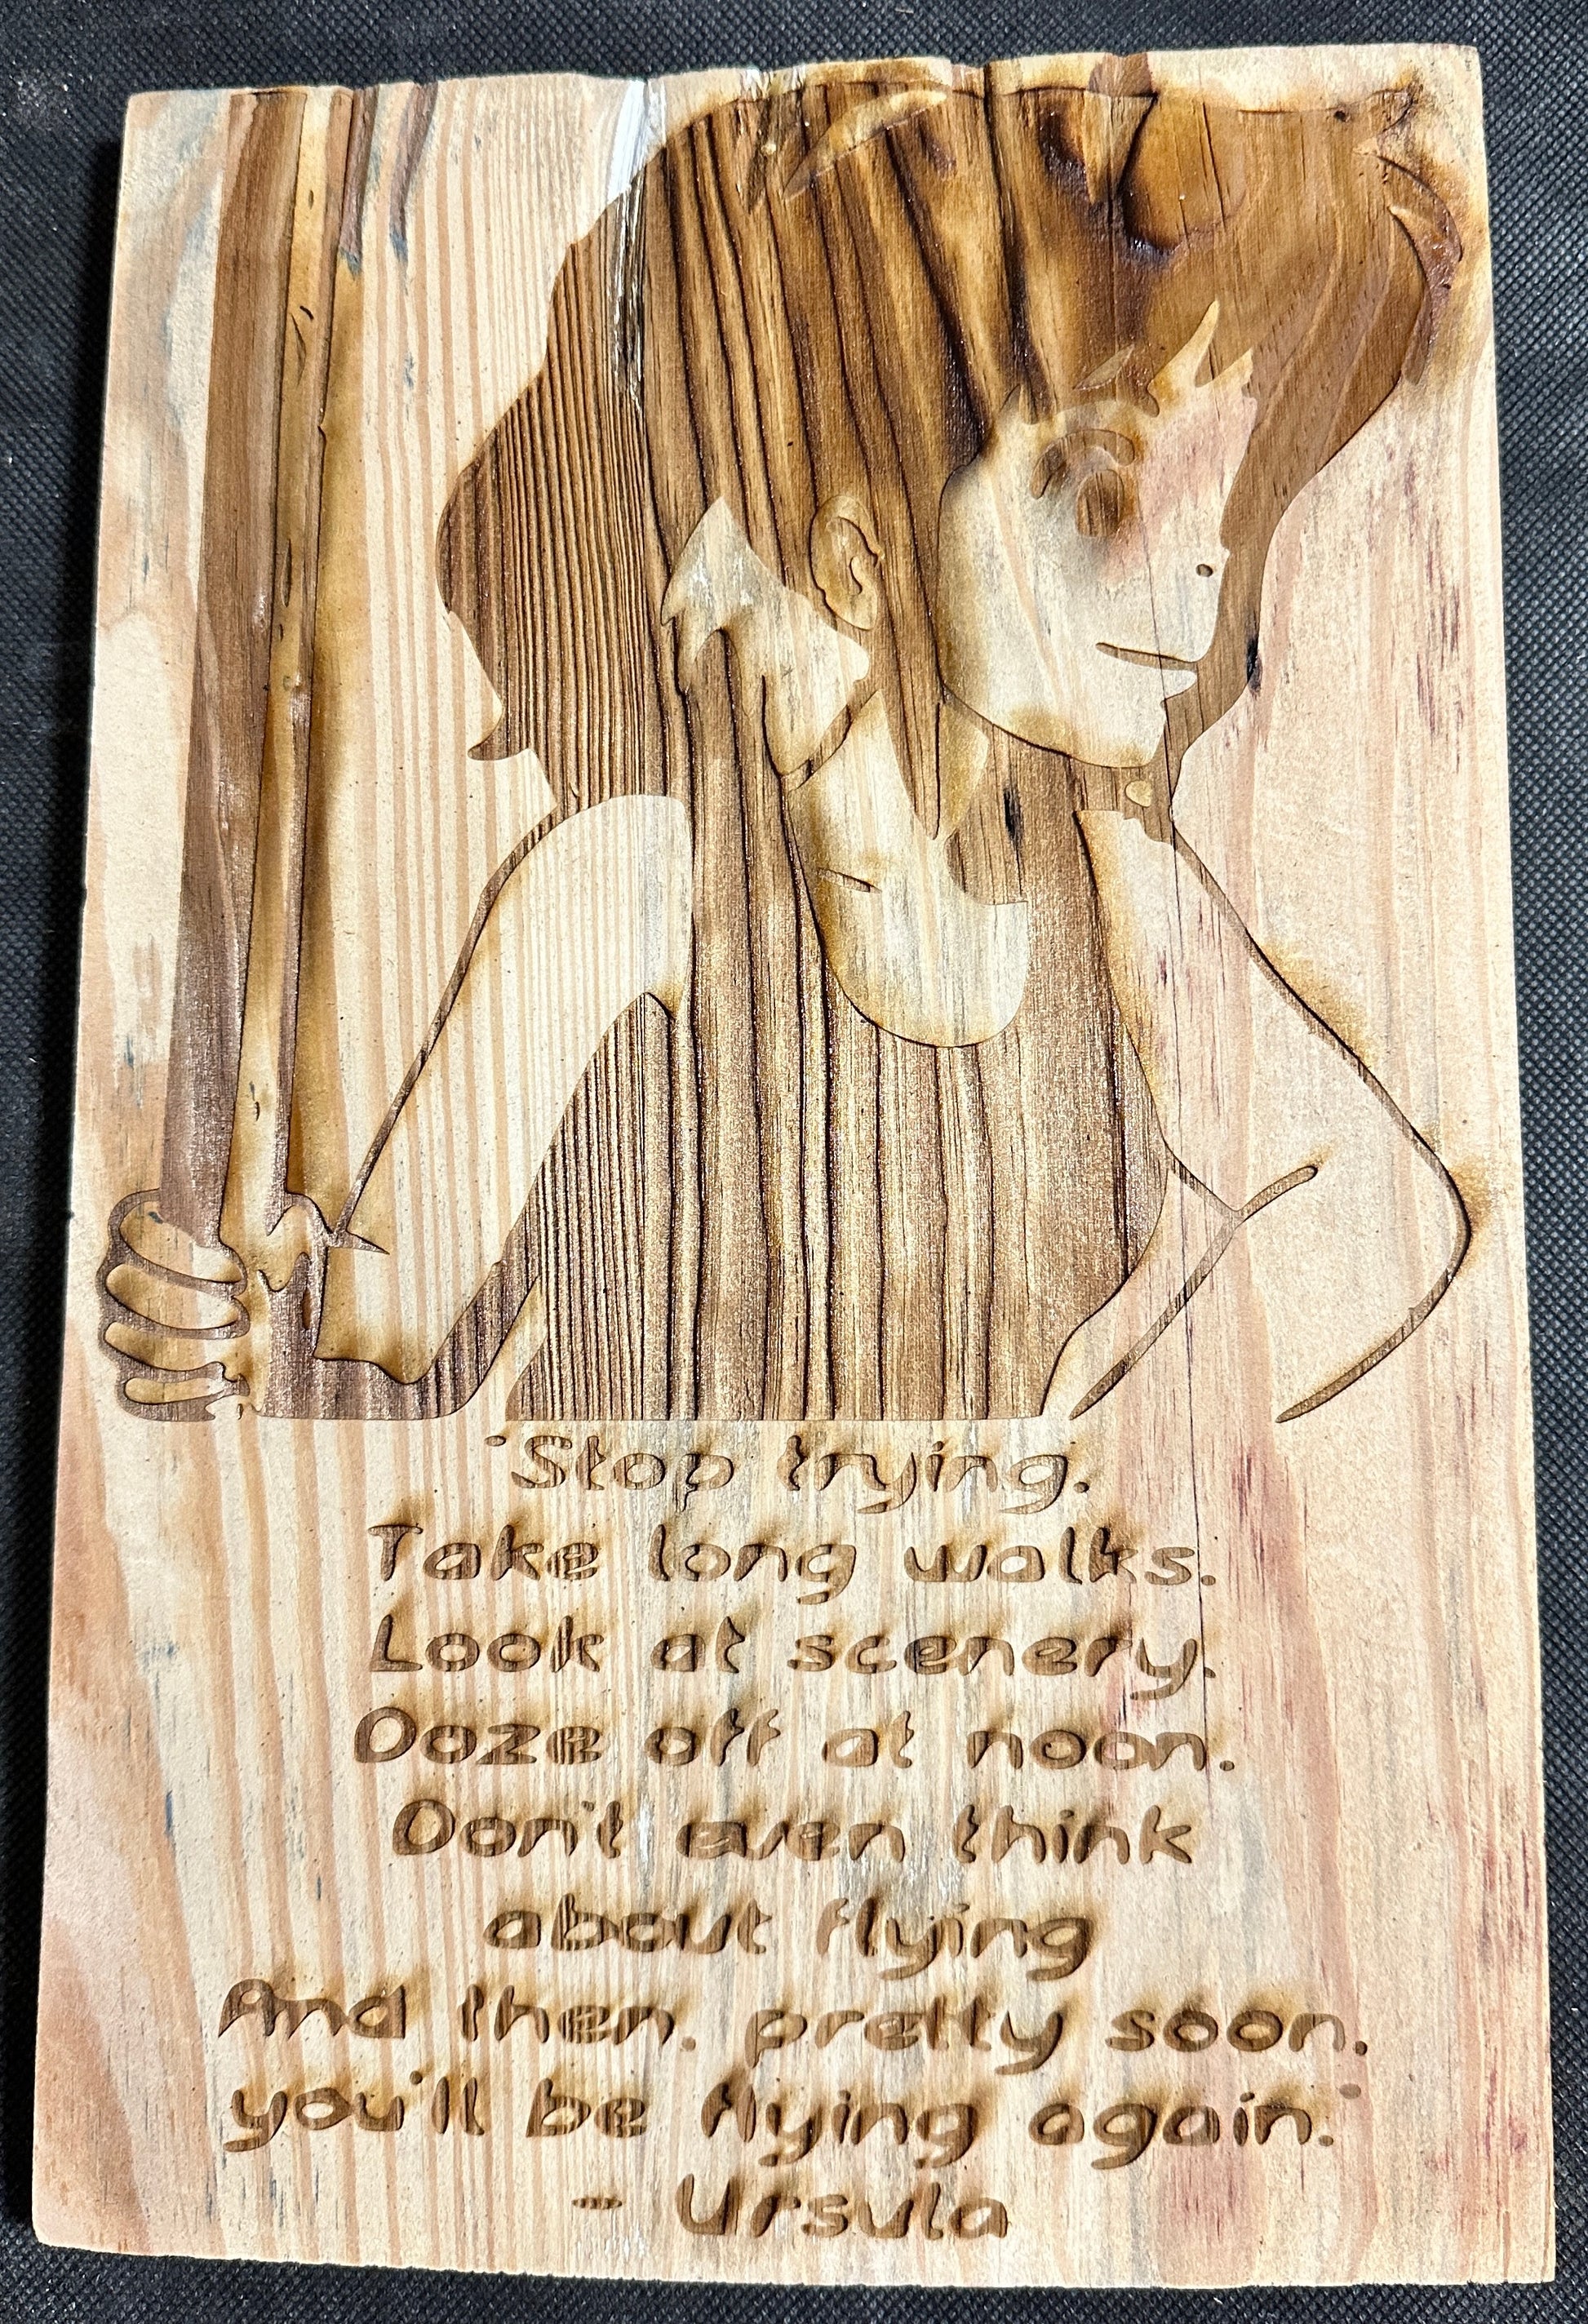 "Stop trying.
Take long walks.
Look at scenery.
Doze off at noon.
Don't even think
about flying
And then, pretty soon,
you'll be flying again."
- Ursula